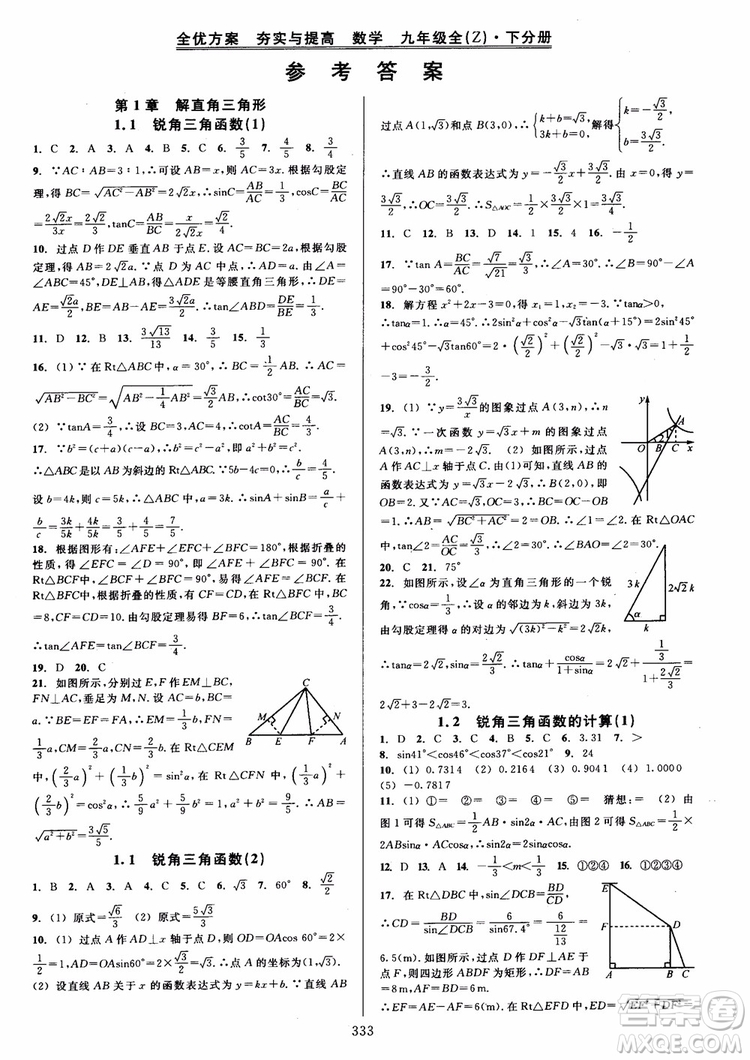 全优方案 夯实与提高 数学 九年级全(Z)·下分册
参考答案
第1章 解直角三角形
1.1 锐角三角函数(1)
1. C 2. A 3. A 4. B 5. C 6. 3/5 7. 4/5 8. 3/4
9. ∵AC∶AB=3∶1,∴可设AB=x,AC=3x,根据勾股定
理,得 BC=√(AC²-AB²)=2√2x,∴sinC=AB/AC=1/3,cosC=BC/AC
=2√2x/3x=2√2/3,tanC=AB/BC=x/(2√2x)=√2/4.
10. 过点D作DE垂直AB于点E.设BC=2a,根据勾股
定理,得 AB=2√2a.∵点D平分AC,∴AD=a.由∠A=
∠ABC=45°,DE⊥AB,得△ADE是等腰直角三角形,
AE=√2a/2,∴BE=3√2a/2.∴tan∠ABD=DE/BE=1/3.
11. D 12. B 13. 3√13/13 14. √13 15. 1/3
16. (1) ∵在Rt△ABC中,α=30°,∴BC=1/2AB.∴AC=
√(AB²-BC²)=√(AB²-1/4AB²)=√3/2AB.∴cos30°=AC/AB=√3/2.
(2) ∵tanA=3/4,∴设BC=3k,AC=4k,则AB=5k.
17. ∵b²=(c+a)(c-a),∴b²=c²-a²,即a²+b²=c².
∴△ABC是以c为斜边的Rt△ABC.∵5b-4c=0,∴b/c=4/5.
设b=4k,则c=5k,∴a=3k.∴sinA+sinB=a/c+
b/c=3k/5k+4k/5k=7/5.
18. 根据图形有:∠AFE+∠EFC+∠BFC=180°,根据折叠的
性质,得∠EFC=∠D=90°,∴∠AFE+∠BFC=90°.在
Rt△BCF中,∠BCF+∠BFC=90°,∴∠AFE=∠BCF.在
Rt△BFC中,根据折叠的性质,有CF=CD,在Rt△BFC中,BC
=8,CF=CD=10.由勾股定理易得BF=6,则tan∠BCF=3/4.
∴tan∠AFE=tan∠BCF=3/4.
19. D 20. C
21. 如图所示,分别过E,F作EM⊥BC,
FN⊥AC,垂足为M,N.设BC=b,AC=
a.∵BE=EF=FA,∴EM=1/3a,BM=
1/3b,∴CM=2/3b.在Rt△CEM中,
(1/3a)²+(2/3b)²=sin²α①,在Rt△CFN中,
(2/3a)²+(1/3b)²=cos²α②,∴5/9a²+5/9b²=1.∴AB=
√(a²+b²)=3√5/5.
1.1 锐角三角函数(2)
1. B 2. A 3. A 4. D 5. C 6. √3 7. 60° 8. √2/2
9. (1) 原式=√6/3 (2) 原式=√3/3
10. (1) 过点A作AD⊥x轴于点D,则OD=OAcos 60°=2×
1/2=1,AD=OAsin60°=2×√3/2=√3,∴点A的坐标为(1,√3).
(2) 设直线AB的函数表达式为y=kx+b(k≠0),则由
过点A(1,√3)和点B(3,0),得{k+b=√3, 3k+b=0,解得{k=-√3/2, b=3√3/2.
∴直线AB的函数表达式为y=-√3/2x+3√3/2.由题意,得点C(0,
3√3/2),∴OC=3√3/2.∴S△AOC=1/2×3√3/2×1=3√3/4.
11. C 12. B 13. D 14. 1 15. 4 16. -1/2
17. ∵tan A=BC/AC=√7/√21=√3/3,∴∠A=30°.∴∠B=
90°-30°=60°.
18. 解方程x²+2x-3=0,得x₁=1,x₂=-3.∵tanα>0,
∴tanα=1.∴α=45°.∴2sin²α+cos²α-√3tan(α+15°)=2sin²45°
+cos²45°-√3tan60°=2·(√2/2)²+(√2/2)²-√3·√3=3/2
-3=-3/2.
19. (1) ∵y=3√3/x的图象过点A(3,n),∴n
=√3.∵一次函数y=√3x+m的图象过点
A(3,n),∴m=-2√3 (2) 如图所示,过点
A作AC⊥x轴于点C.由(1)可知,直线AB的
函数表达式为y=√3x-2√3.∴B(2,0),即
OB=2.又AC=√3,OC=3,∴BC=OC-OB=
1.∴AB=√(BC²+AC²)=2=OB.在Rt△OAC
中,tan∠AOC=AC/OC=√3/3,∴∠AOC=30°.∴∠BAO=∠AOC=30°.
20. C 21. 75°
22. 如图所示,设∠α为直角三角形的一个锐
角,∵cosα=1/3,∴设α的邻边为k,斜边为3k,
由勾股定理得α的对边为√((3k)²-k²)=2√2k,
∴tanα=2√2.∴tanα+cosα/(1+sinα)+cosα/(1-sinα)=
2√2+3-2√2+3+2√2=
1.2 锐角三角函数的计算(1)
1. D 2. D 3. A 4. B 5. C 6. 3.31 7. >
8. sin41°<cos46°<cos37°<cos21° 9. 24
10. (1) 0.7314 (2) 0.2164 (3) 0.9041 (4) 1.0000
(5) -0.7817
11. (1) ①= ②= ③= ④= ⑤= 猜想:= (2) 由
图1可得S△ABC=1/2×AB·sin2α·AC,由图2可得S△ABC=1/2×
2ABsinα·AC·cosα,∴sin2α=2sinα·cosα
12. D 13. A 14. -1/2<m<1/2 15. ①③④ 16. ①②④
17. 在Rt△DBC中,∵sin∠DCB=BD/CD,
∴CD=BD/sin∠DCB=6/sin67.4°=6/(12/13)=
6.5(m).如图所示,过点D作DF⊥AE于
点F,则四边形ABDF为矩形,∴DF=AB
=8m,AF=BD=6m.∵AE=10m,
∴EF=AE-AF=4m.在Rt△EFD中,ED=√(EF²+DF²)=
333